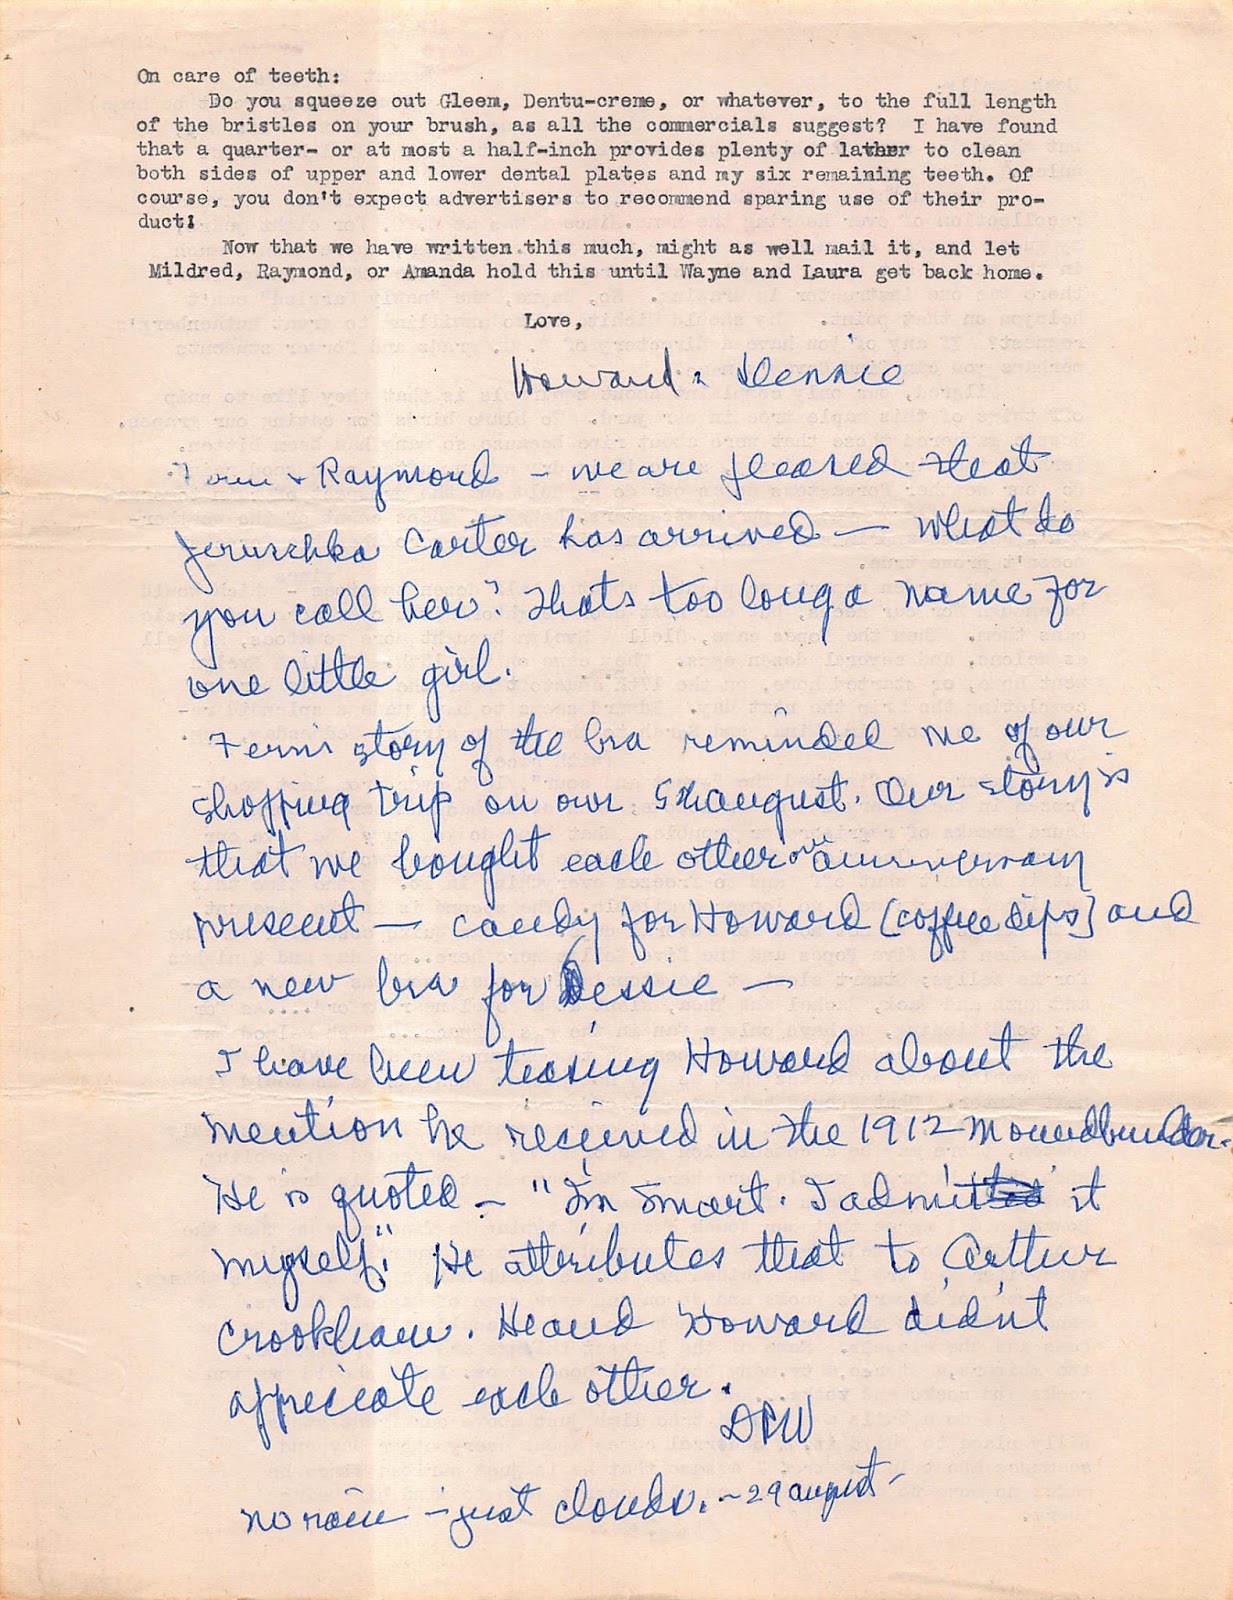 On care of teeth:
Do you squeeze out Gleem, Dentu-creme, or whatever, to the full length
of the bristles on your brush, as all the commercials suggest? I have found
that a quarter- or at most a half-inch provides plenty of lather to clean
both sides of upper and lower dental plates and my six remaining teeth. Of
course, you don't expect advertisers to recommend sparing use of their pro-
duct!
Now that we have written this much, might as well mail it, and let
Mildred, Raymond, or Amanda hold this until Wayne and Laura get back home.
Love,
Howard &
& Raymond - we are pleased that
Jeruschka Carter has arrived — What do
you call her? Thats too long a name for
one little girl.
Fern's story of the bra reminded me of our
shopping trip on our 5th august. Our story is
that we bought each other our anniversary
present — candy for Howard [coffee dips] and
a new bra for Dessie —
I have been teasing Howard about the
mention he received in the 1912 Moundbuilder.
He is quoted - "I'm smart. I admit it
myself." He attributes that to Arthur
Crookham. He and Howard didn't
appreciate each other.
DPW
no rain - just clouds. - 29 august -